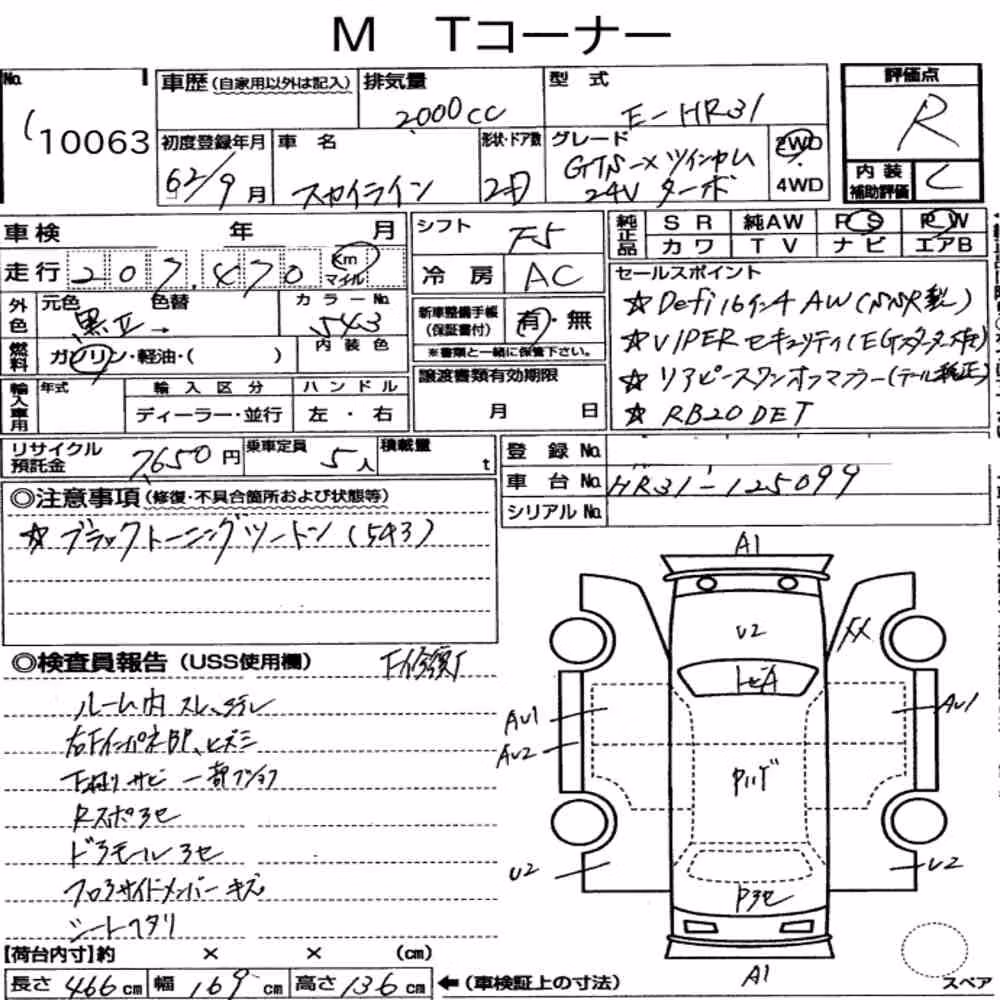 M Tコーナー
No.
10063
車歴(自家用以外は記入)
排気量
2000cc
型式
E-HR31
評価点
R
内装
補助評価
C
初度登録年月
62/9月
車名
スカイライン
形状・ドア数
2D
グレード
GTS-X ツインカム
24V ターボ
2WD
4WD
車検 年 月
走行 207,470 Km
マイル
シフト
F5
冷房
AC
純正品
SR 純AW PS PW
カワ TV ナビ エアB
外色
元色 色替
黒II→
カラーNo.
543
内装色
燃料
ガソリン・軽油・( )
新車整備手帳
(保証書付)
有・無
※書類と一緒に保管下さい。
セールスポイント
☆Defi 16インチ AW(SSR製)
☆VIPER セキュリティ(EGスターター付)
☆リアピースワンオフマフラー(テール純正)
☆RB20DET
輸入車用
年式
輸入区分
ディーラー・並行
ハンドル
左・右
譲渡書類有効期限
月 日
リサイクル
預託金
7650円
乗車定員
5人
積載量
t
登録No.
車台No.
HR31-125099
シリアルNo.
◎注意事項(修復・不具合箇所および状態等)
☆ブラックトーニングツートン(543)
◎検査員報告(USS使用欄)
ルーム内スレ、
右Fインパネ BP、ヒズミ
下廻りサビ 一部
Rスポ3セ
ドラモール3セ
フロアサイドメンバーキズ
シートヘタリ
A1
U2
XX
AU1
AU2
AU1
U2
P3セ
U2
A1
スペア
【荷台内寸】約 × × (cm)
長さ 466cm 幅 169cm 高さ 136cm ←(車検証上の寸法)